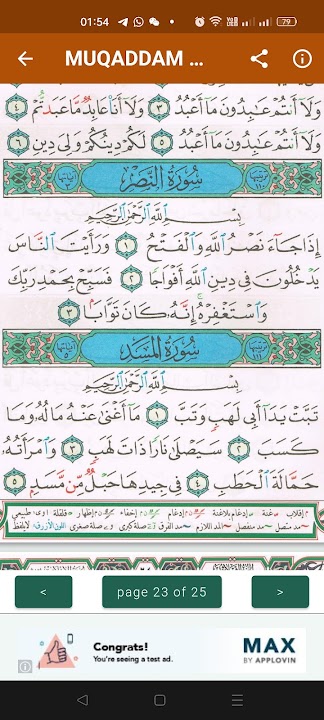 01:54
VoWiFi
79
MUQADDAM ...
وَلَا أَنتُمْ عَٰبِدُونَ مَا أَعْبُدُ ٣ وَلَا أَنَا عَابِدٌ مَّا عَبَدتُّمْ ٤
وَلَا أَنتُمْ عَٰبِدُونَ مَا أَعْبُدُ ٥ لَكُمْ دِينُكُمْ وَلِيَ دِينِ ٦
سُورَةُ النَّصْرِ
بِسْمِ اللَّهِ الرَّحْمَٰنِ الرَّحِيمِ
إِذَا جَاءَ نَصْرُ اللَّهِ وَالْفَتْحُ ١ وَرَأَيْتَ النَّاسَ
يَدْخُلُونَ فِي دِينِ اللَّهِ أَفْوَاجًا ٢ فَسَبِّحْ بِحَمْدِ رَبِّكَ
وَاسْتَغْفِرْهُ إِنَّهُ كَانَ تَوَّابًا ٣
سُورَةُ الْمَسَدِ
بِسْمِ اللَّهِ الرَّحْمَٰنِ الرَّحِيمِ
تَبَّتْ يَدَا أَبِي لَهَبٍ وَتَبَّ ١ مَا أَغْنَىٰ عَنْهُ مَالُهُ وَمَا
كَسَبَ ٢ سَيَصْلَىٰ نَارًا ذَاتَ لَهَبٍ ٣ وَامْرَأَتُهُ
حَمَّالَةَ الْحَطَبِ ٤ فِي جِيدِهَا حَبْلٌ مِّن مَّسَدٍ ٥
< page 23 of 25 >
Congrats!
You're seeing a test ad.
MAX
BY APPLOVIN